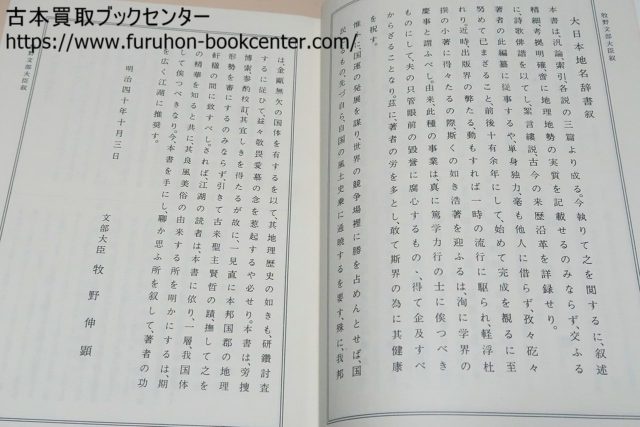 古本買取ブックセンター
https://www.furuhon-bookcenter.com/
牧野文部大臣叙
大日本地名辞書叙
本書は、汎論索引、各説の三篇より成る。今執りて之を閲するに、叙述
精細考拠明確啻に地理地勢の実質を記載せるのみならず、交ふる
に、詩歌俳諧を以てし、累言縷説古今の来歴沿革を詳録せり。
著者の此編纂に従事するや、単身独力、毫も他人に借らず、孜々矻々
努めて已まざること、前後十有余年にして、始めて完成を観るに至
れり、近時、出版界の弊たる動もすれば一時の流行に駆られ、軽浮杜
撰の小著に得々たるの際、斯くの如き浩著を迎ふるは、洵に学界の
慶事と謂ふべし。由来、此種の事業は、真に篤学力行の士に俟つべき
ものにして、夫の只管眼前の毀誉に腐心するもの、得て企及すべ
からざることなり。茲に、著者の労を多とし、敢て斯界の為に其健康
を祝す。
惟ふに、国運の発展を謀り、世界の競争場裡に勝を占めんとせば、国
民たるもの、先づ自ら、自国の風土史乗に通暁するを要す、殊に、我邦
牧野文部大臣叙
は、金甌無欠の国体を有するを以て、其地理歴史の如きも、研鑽討査
するに従ひて益々敬畏愛慕の念を惹起するや必せり。本書は、旁捜
博索参酌校訂、其宜しきを得たるが故に、一見直に本邦国郡の地理
形勢を審にするのみならず、引きて古来聖主賢哲の蹟、撫して之を
軒楹の間に致すべし。されば、江湖の読者は、本書に依り、一層、我国体
の精華を知ると共に、其良風美俗の由来する所を明かにするは、期
して俟つべきなり。今、本書を手にし、聊か思ふ所を叙して、著者の功
を広く江湖に推奨す。
明治四十年十月三日
文部大臣 牧野伸顕